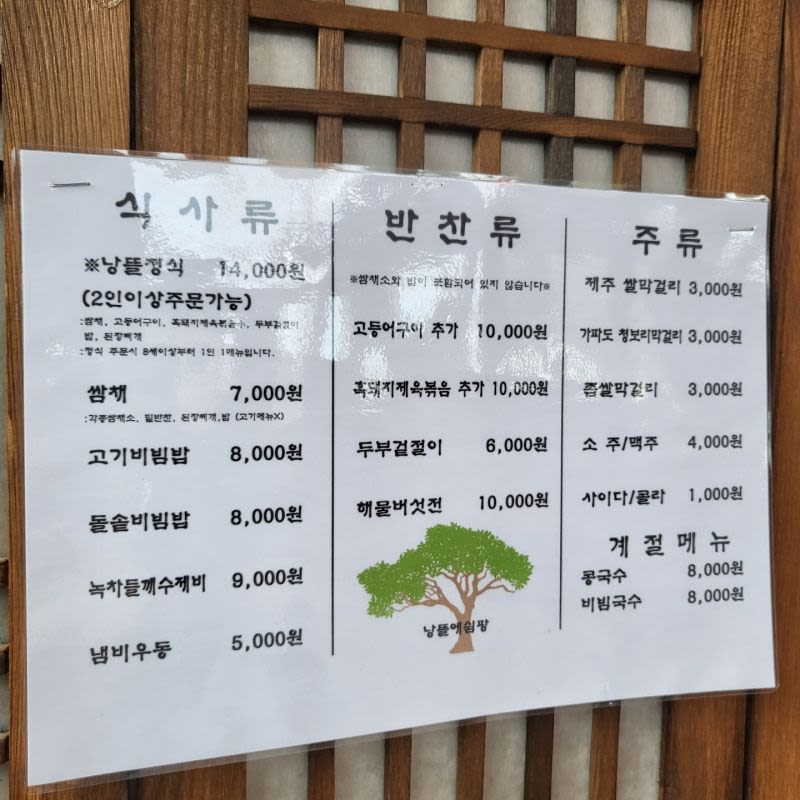 식사류
※낭뜰정식 14,000원
(2인이상주문가능)
:쌈채, 고등어구이, 흑돼지제육볶음小, 두부겉절이
밥, 된장찌개
:정식 주문시 8세이상부터 1인 1메뉴입니다.
쌈채 7,000원
:각종쌈채소, 밑반찬, 된장찌개,밥 (고기메뉴X)
고기비빔밥 8,000원
돌솥비빔밥 8,000원
녹차들깨수제비 9,000원
냄비우동 5,000원
반찬류
※쌈채소와 밥이 포함되어 있지 않습니다※
고등어구이 추가 10,000원
흑돼지제육볶음 추가 10,000원
두부겉절이 6,000원
해물버섯전 10,000원
낭뜰에쉼팡
주류
제주 쌀막걸리 3,000원
가파도 청보리막걸리 3,000원
좁쌀막걸리 3,000원
소 주/맥주 4,000원
사이다/콜라 1,000원
계절메뉴
콩국수 8,000원
비빔국수 8,000원